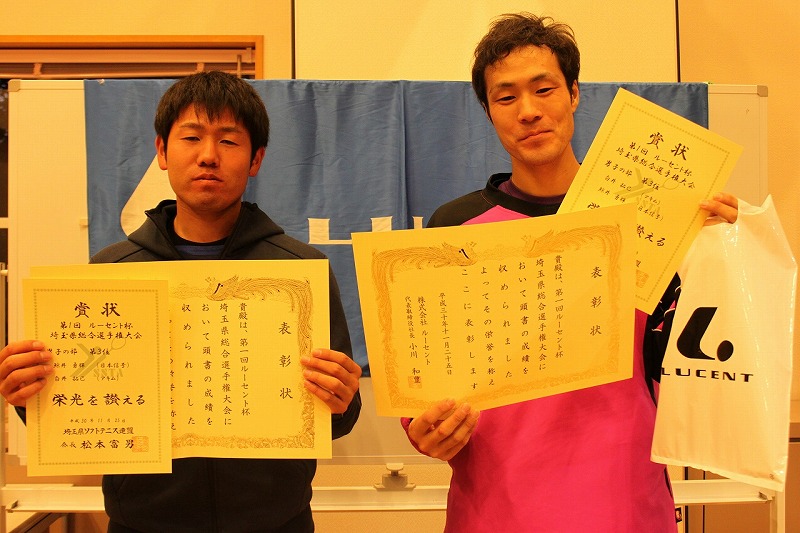 賞状
第1回 ルーセント杯
埼玉県総合選手権大会
男子の部 第3位
(日本信号)
栄光を讃える
平成30年11月25日
埼玉県ソフトテニス連盟
会長 松本富男
表彰状
貴殿は、第一回ルーセント杯
埼玉県総合選手権大会に
おいて頭書の成績を
収められました
表彰状
貴殿は、第一回ルーセント杯
埼玉県総合選手権大会に
おいて頭書の成績を
収められました
よってその栄誉を称え
ここに表彰します
平成三十年十一月二十五日
株式会社 ルーセント
代表取締役社長 小川
賞状
第1回 ルーセント杯
埼玉県総合選手権大会
男子の部 第3位
(日本信号)
える
LUCENT